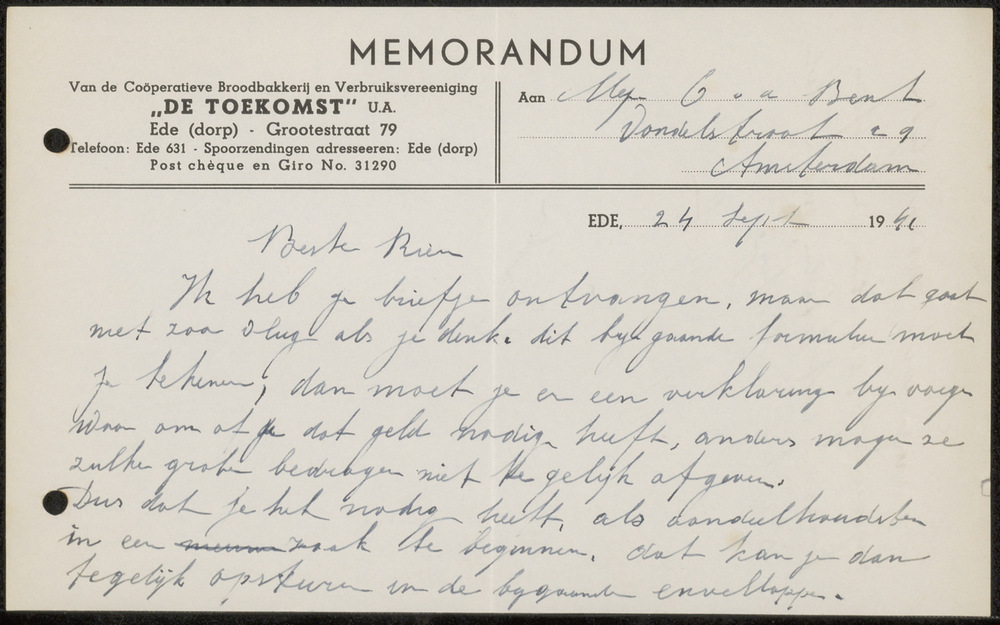 MEMORANDUM
Van de Coöperatieve Broodbakkerij en Verbruiksvereeniging
„DE TOEKOMST” U.A.
Ede (dorp) - Grootestraat 79
Telefoon: Ede 631 - Spoorzendingen adresseeren: Ede (dorp)
Post chèque en Giro No. 31290
Aan Mej C v a Bent
Vondelstraat 9
Amsterdam
EDE, 24 Sept 1941
Beste Rien
Ik heb je briefje ontvangen, maar dat gaat
niet zoo vlug als je denk. dit bijgaande formulier moet
je tekenen, dan moet je er een verklaring bij voegen
waar om of je dat geld nodig heeft, anders mogen ze
zulke grote bedragen niet te gelijk afgeven.
Dus dat je het nodig heeft, als aandeelhoudster
in een nieuwe zaak te beginnen. dat kan je dan
tegelijk opsturen in de bijgaande enveloppe.